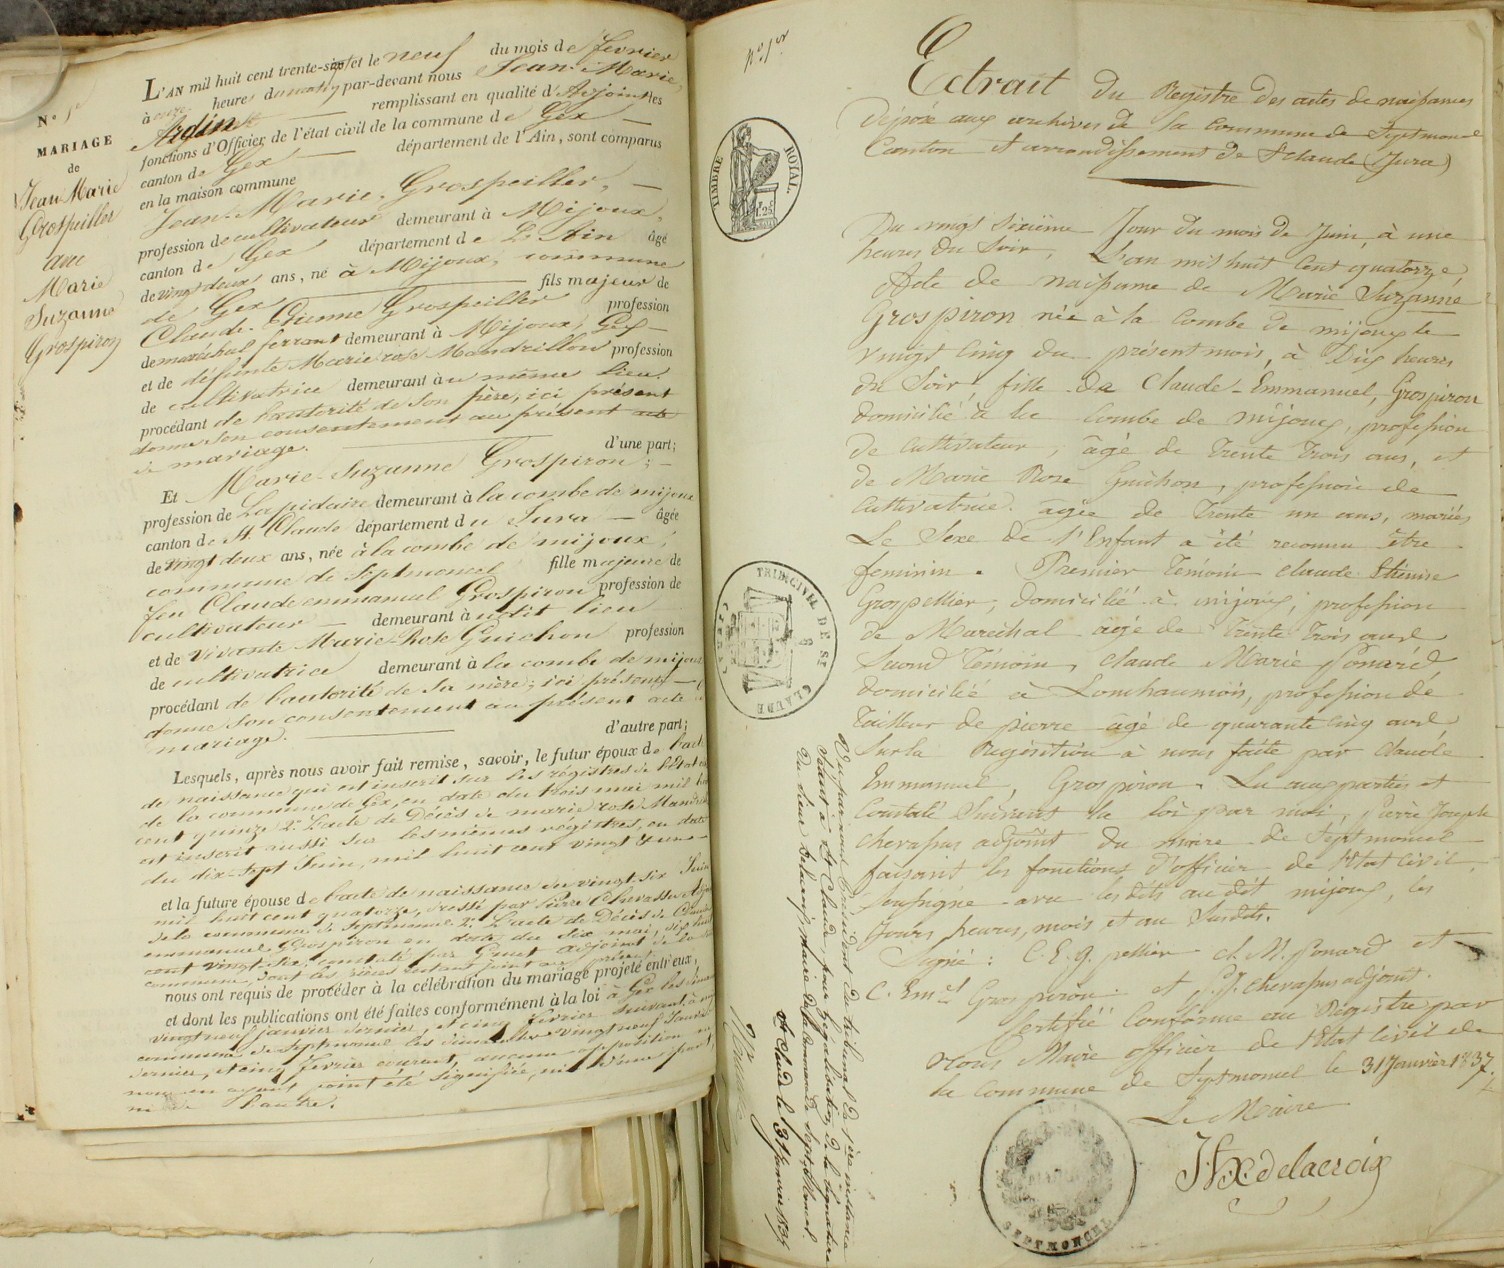 N° 1er
MARIAGE
de
Jean Marie
Grospeiller
avec
Marie
Suzanne
Grospiron
L'AN mil huit cent trente-sept et le neuf du mois de février
à onze heures du matin par-devant nous Jean-Marie
Ardin remplissant en qualité d'Adjoint les
fonctions d'Officier de l'état civil de la commune de Gex
canton de Gex département de l'Ain, sont comparus
en la maison commune
Jean-Marie Grospeiller,
profession de cultivateur demeurant à Mijoux,
canton de Gex département de L'Ain âgé
de vingt deux ans, né à Mijoux, commune
de Gex fils majeur de
Claude-Etienne Grospeiller profession
de maréchal ferrant demeurant à Mijoux, Gex
et de défunte Marie rose Mandrillon profession
de cultivatrice demeurant au même lieu
procédant de l'autorité de son père, ici présent
donne son consentement au présent acte
de mariage. d'une part;
Et Marie-Suzanne Grospiron;
profession de Lapidaire demeurant à la combe de mijoux
canton de St. Claude département du Jura âgée
de vingt deux ans, née à la combe de mijoux,
commune de Septmoncel fille majeure de
feu Claude emmanuel Grospiron profession de
cultivateur demeurant audit lieu
et de vivante Marie-Rose Guichon profession
de cultivatrice demeurant à la combe de mijoux
procédant de l'autorité de sa mère; ici présente
donne son consentement au présent acte de
mariage. d'autre part;
Lesquels, après nous avoir fait remise, savoir, le futur époux de l'acte
de naissance qui est inscrit sur les régistres de l'Etat civil
de la commune de Gex, en date du trois mai mil huit
cent quinze 2° L'acte de Décès de marie rose Mandrillon
est inscrit aussi sur les mêmes régistres, en date
du dix-sept Juin, mil huit cent vingt et une
et la future épouse de l'acte de naissance du vingt six Juin
mil huit cent quatorze, dressé par Pierre Chevassus Adjoint
de la commune de Septmoncel 2° L'acte de Décès de Claude
emmanuel Grospiron en date du dix mai, mil huit
cent vingt six, constaté par adjoint de la
commune, dont les pièces
nous ont requis de procéder à la célébration du mariage projeté entr'eux,
et dont les publications ont été faites conformément à la loi à Gex les
vingt neuf janvier dernier, et cinq février suivant, à
commune de Septmoncel les dimanches vingt neuf Janvier
dernier, et cinq février courant, aucune opposition
nous en ayant point été signifiée, ni d'une part,
ni de l'autre.
N° 1er
Extrait du Registre des actes de naissances
déposé aux archives de la commune de Septmoncel
Canton et arrondissement de St Claude (Jura)
TIMBRE ROYAL.
Du vingt sixième Jour du mois de Juin, à une
heures du Soir, L'an mil huit Cent quatorze,
Acte de naissance de Marie Suzanne
Grospiron née à la Combe de mijoux le
vingt Cinq du présent mois, à Dix heures
du Soir, fille de Claude-Emmanuel, Grospiron
domicilié à la Combe de mijoux, profession
de Cultivateur, âgé de Trente Trois ans, et
de Marie Rose Guichon, profession de
Cultivatrice âgée de Trente un ans, mariés
Le Sexe de l'Enfant a été reconnu être
feminin. Premier Témoin Claude Etienne
Grospellier, domicilié à mijoux, profession
de Maréchal âgé de Trente Trois ans
Second Témoin, Claude Marie Ponard
domicilié à Lonchaumois, profession de
Tailleur de pierre âgé de quarante Cinq ans,
Sur la Requisition à nous faite par Claude
Emmanuel, Grospiron. Lu aux parties et
Constaté Suivant la Loi par moi, Pierre Joseph
Chevassus adjoint du maire de Septmoncel
faisant les fonctions d'officier de l'état Civil,
Soussigné avec les dits au dit mijoux, les
Jours heures, mois et an Susdits.
Signé : C. E. G. pellier cl. M. Ponard et
C. Emel Grospiron. et P. J. chevassus adjoint.
Certifié Conforme au Registre par
Nous Maire officier de l'état Civil de
la Commune de Septmoncel le 31 Janvier 1837.
Le Maire
Delacroix
TRIB. CIVIL DE ST CLAUDE
SEPTMONCEL
Vu par nous Président du tribunal de 1ère instance
séant à St Claude, pour légalisation de la signature
du Sieur Delacroix, maire de la Commune de Septmoncel
St Claude le 31 janvier 1837